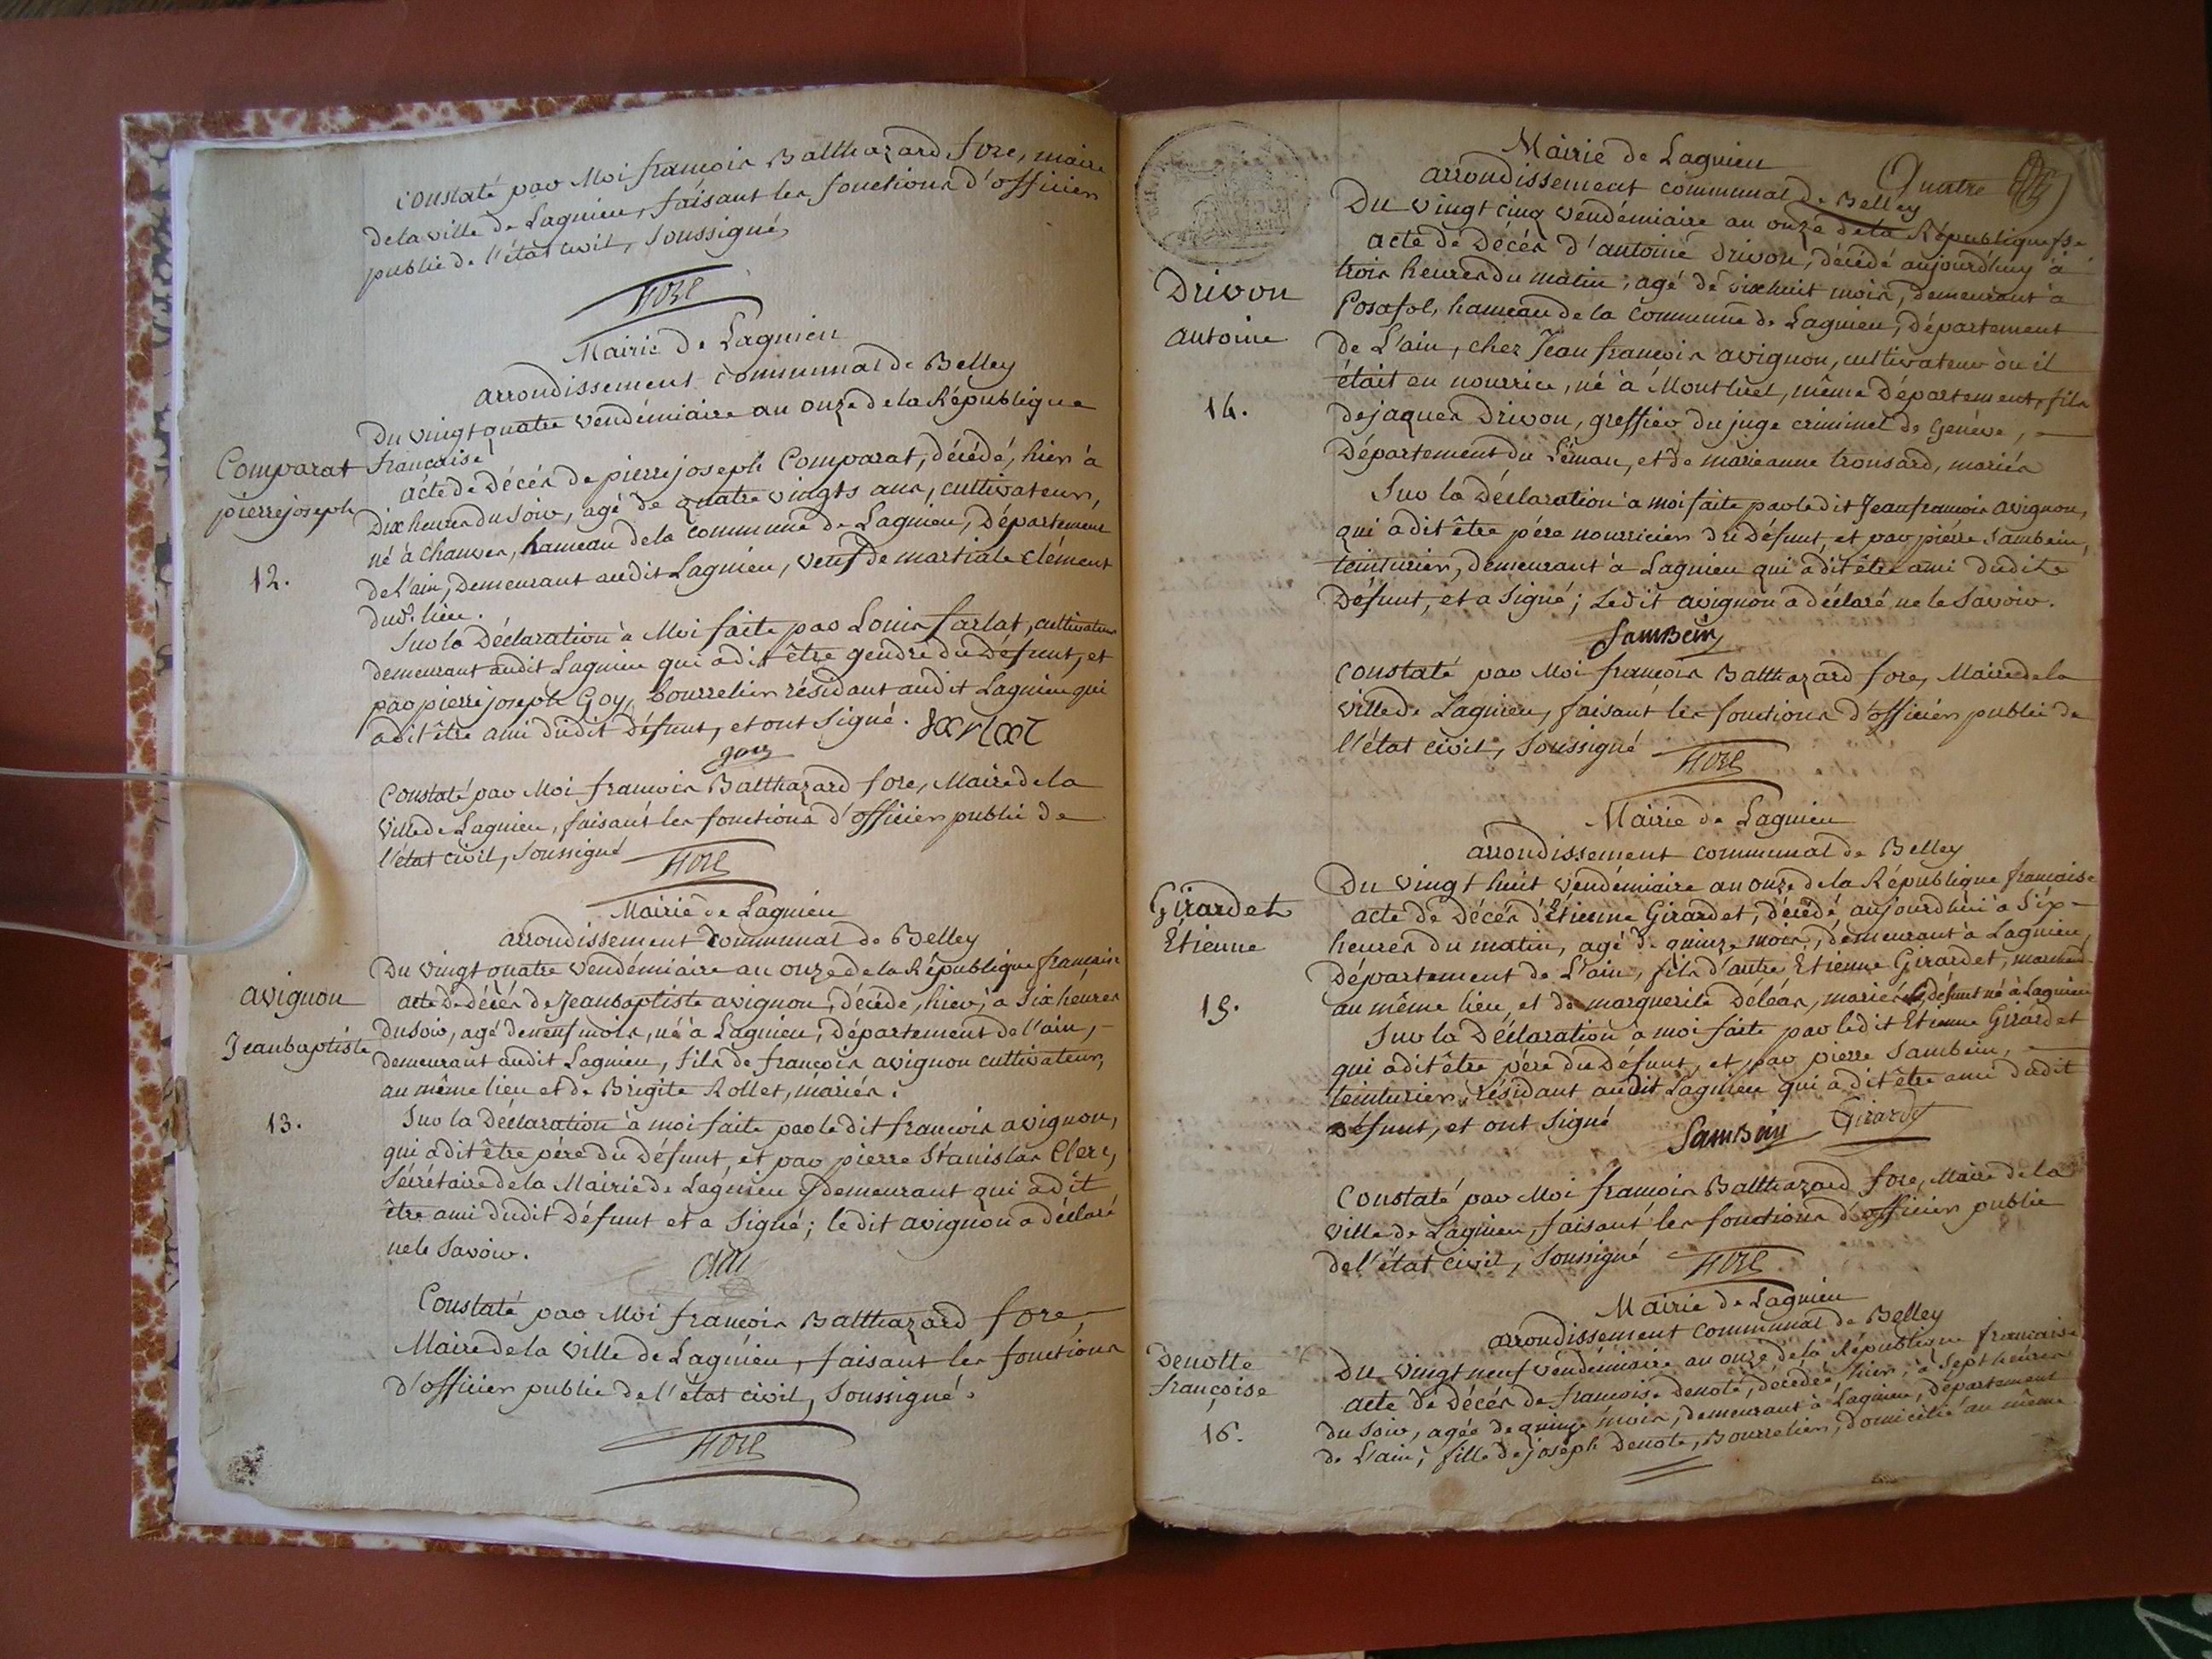 Constaté par Moi françois Balthazard fore, maire
dela ville de Lagnieu, faisant les fonctions d'officier
public de l'état civil, Soussigné,
fore
Mairie de Lagnieu
arrondissement communal de Belley
Du vingt quatre vendémiaire an onze de la République
française
Comparat
pierre joseph
12.
acte de Décés de pierre joseph Comparat, décédé, hier à
Dix heures du soir, agé de quatre vingts ans, cultivateur,
né à chanves, hameau dela commune de Lagnieu, Département
de l'ain, Demeurant audit Lagnieu, veuf de martiale clément
dud. lieu.
Sur la Déclaration à Moi faite par Louis farlat, cultivateur
demeurant audit Lagnieu qui a dit être gendre du Défunt, et
par pierre joseph Goy, bourrelier résidant audit Lagnieu qui
a dit être ami dudit Défunt, et ont Signé. farlat
goy
Constaté par Moi francois Balthazard fore, Maire dela
ville de Lagnieu, faisant les fonctions d'officier public de
l'état civil, Soussigné
fore
Mairie de Lagnieu
arrondissement Communal de Belley
Du vingt quatre vendémiaire an onze de la République française
avignon
Jean baptiste
13.
acte de décés de Jean baptiste avignon, décédé, hier, à Six heures
du soir, agé de neuf mois, né à Lagnieu, Département de l'ain,
demeurant audit Lagnieu, fils de françois avignon cultivateur,
au même lieu et de Brigite Rollet, mariés.
Sur la Déclaration à moi faite par le dit françois avignon,
qui a dit être pére du Défunt, et par pierre Stanislas Clerc,
Sécrétaire de la Mairie de Lagnieu y demeurant qui a dit
être ami dudit Défunt et a Signé; le dit avignon a déclaré
ne le Savoir.
Constaté par Moi françois Balthazard fore,
Maire de la ville de Lagnieu, faisant les fonctions
d'officier public de l'état civil, Soussigné.
fore
Mairie de Lagnieu
Quatre
arrondissement communal de Belley
Du vingt cinq vendémiaire an onze de la République fse
Drivon
antoine
14.
acte de Décés d'antoine Drivon, décédé aujourd'huy à
trois heures du matin, agé de dix huit mois, demeurant à
Posafol, hameau de la commune de Lagnieu, Département
de L'ain, chez Jean françois avignon, cultivateur où il
était en nourrice, né à Montluel, même Département, fils
de jaques Drivon, greffier du juge criminel de Genéve,
Département du Léman, et de marie anne tronsard, mariés
Sur la Déclaration à moi faite par le dit Jean francois avignon,
qui a dit être pére nourricier du Défunt, et par pierre Sambein,
teinturier, demeurant à Lagnieu qui a dit être ami dudit
Défunt, et a Signé; Ledit avignon a déclaré ne le Savoir.
Sambein
Constaté par Moi françois Balthazard fore, Maire dela
ville de Lagnieu, faisant les fonctions d'officier public de
l'état civil, Soussigné
fore
Mairie de Lagnieu
arrondissement communal de Belley
Du vingt huit vendémiaire an onze de la République francaise
Girardet
Etienne
15.
acte de Décés d'Etienne Girardet, décédé aujourdhui à Six
heures du matin, agé de quinze mois, demeurant à Lagnieu,
Département de L'ain, fils d'autre Etienne Girardet, marchand
au même lieu, et de marguerite Déléas, mariés, le défunt né à Lagnieu
Sur la Déclaration à moi faite par ledit Etienne Girardet
qui a dit être pére du Défunt, et par pierre Sambein,
teinturier, résidant audit Lagnieu qui a dit être ami dudit
défunt, et ont Signé
Sambein Girardet
Constaté par Moi françois Balthazard fore, Maire dela
ville de Lagnieu, faisant les fonctions d'officier public
de l'état civil, Soussigné
fore
Mairie de Lagnieu
arrondissement communal de Belley
Denotte
françoise
16.
Du vingt neuf vendémiaire an onze de la République francaise
acte de décés de françoise denote, décédée, hier, à Sept heures
du soir, agée de quinze mois, demeurant à Lagnieu, département
de L'ain, fille de joseph Denote, Bourrelier, domicilié au même